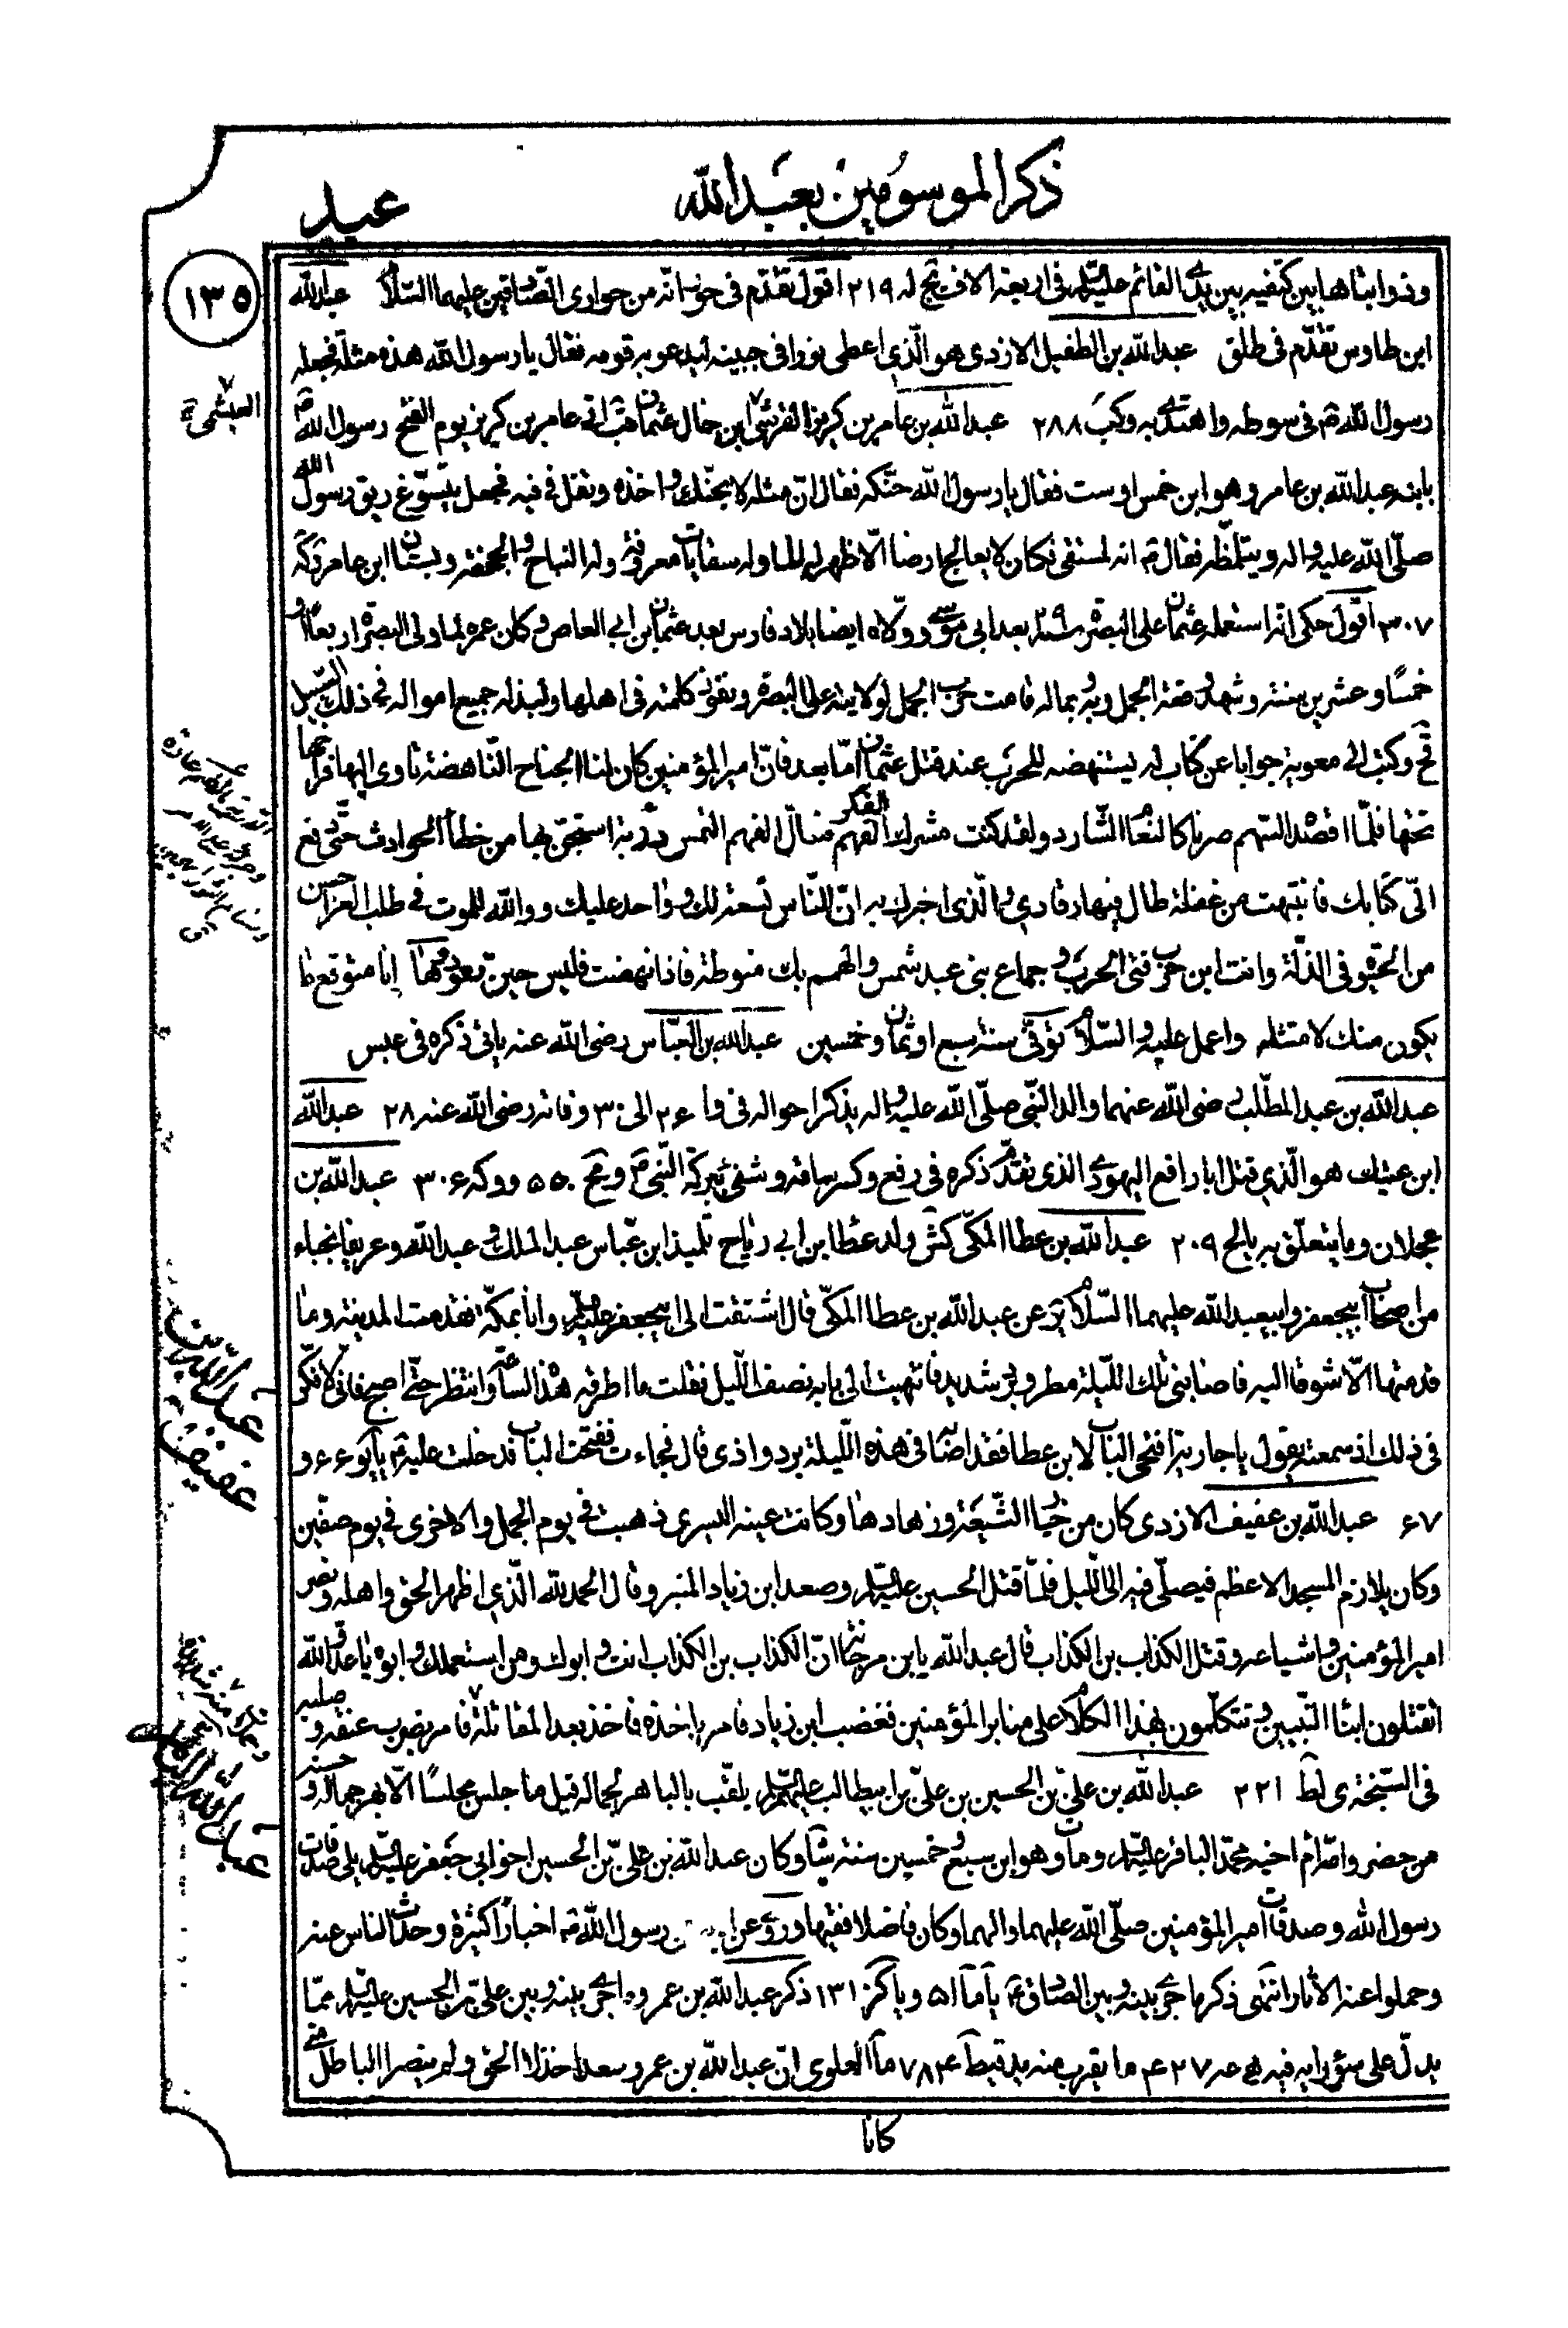 ذكر الموسومين بعبد الله
عبد
١٣٥
وذوابتاها بين كتفيه بين يدي القائم عليه السلام في اربعة الاف يج له ٢١٩ اقول تقدم في حور انه من حواري الصادقين عليهما السلام عبد الله
ابن طاوس تقدم في طلق عبد الله بن الطفيل الازدي هو الذي اعطى نورا في جبينه ليدعو به قومه فقال يا رسول الله هذه مثلة فجعله
العبشمي
رسول الله ص في سوطه واهتدى به وكب ٢٨٨ عبد الله بن عامر بن كريز القرشي ابن خال عثمان قب اتى عامر بن كريز يوم الفتح رسول الله ص
بابنه عبد الله بن عامر وهو ابن خمس او ست فقال يا رسول الله حنكه فقال ان مثله لا يحنك واخذه وتفل في فيه فجعل يتسوغ ريق رسول الله
صلى الله عليه واله ويتلمظه فقال ص انه لمستقى فكان لا يعالج ارضا الا ظهر له الماء وله سقايات معروفة وله النباج والجحفة وبستان ابن عامر وكه
٣٠٧ اقول حكي انه استعمله عثمان على البصرة سنة ٢٩ بعد ابي موسى وولاه ايضا بلاد فارس بعد عثمان بن ابي العاص وكان عمره لما ولي البصرة اربعا او
خمسا وعشرين سنة وشهد وقعة الجمل وبه وبماله قامت حرب الجمل لولايته على البصرة ونفوذ كلمته في اهلها ولبذله جميع امواله في ذلك السبيل
فح وكتب الى معوية جوابا عن كتاب له يستنهضه للحرب عند قتل عثمان اما بعد فان امير المؤمنين كان لنا الجناح الناهضة تاوي اليها فراخها
تحتها فلما اقصده السهم صرنا كالنعام الشارد ولقد كنت مشرك الفكر ضال الفهم التمس دريئة استجن بها من خطأ الحوادث حتى دفع
الي كتابك فانتبهت من غفلة طال فيها رقادي والذي اخبرك به ان الناس تسعة لك وواحد عليك ووالله للموت في طلب العز احسن
من الحيوة في الذلة وانت ابن حرب فتى الحرب وجماع بني عبد شمس والهمم بك منوطة فاذا نهضت فليس حين قعود وها انا متوقع ما
يكون منك لامتثله واعمل عليه والسلام توفي سنة سبع او ثمان وخمسين عبد الله بن العباس رضي الله عنه ياتي ذكره في عبس
عبد الله بن عبد المطلب رضي الله عنهما والد النبي صلى الله عليه واله يذكر احواله في وا ٢٦ الى ٣٠ وفاته رضي الله عنه ٢٨ عبد الله
ابن عتيك هو الذي قتل ابا رافع اليهودي الذي تقدم ذكره في رفع وكسر ساقه وشفي ببركة النبي ص ومج ٥٥٠ ووكه ٣٠٦ عبد الله بن
عجلان وما يتعلق به يا لح ٢٠٩ عبد الله بن عطا المكي كش ولد عطا بن ابي رياح تلميذ ابن عباس عبد الملك وعبد الله وعريفا نجباء
من اصحاب ابيجعفر وابيعبد الله عليهما السلام ير عن عبد الله بن عطا المكي قال اشتقت الى ابيجعفر عليه السلام وانا بمكة فقدمت المدينة وما
قدمتها الا شوقا اليه فاصابني تلك الليلة مطر وبرد شديد فانتهيت الى بابه نصف الليل فقلت ما اطرقه هذه الساعة وانتظر حتى اصبح فاني لافكر
في ذلك اذ سمعته يقول يا جارية افتحي الباب لابن عطا فقد اصابه في هذه الليلة برد واذى قال فجاءت ففتحت الباب فدخلت عليه ع يا يو ٦٦ و
٦٧ عبد الله بن عفيف الازدي كان من خيار الشيعة وزهادها وكانت عينه اليسرى ذهبت في يوم الجمل والاخرى في يوم صفين
وكان يلازم المسجد الاعظم فيصلي فيه الى الليل فلما قتل الحسين عليه السلام وصعد ابن زياد المنبر وقال الحمد لله الذي اظهر الحق واهله ونصر
امير المؤمنين واشياعه وقتل الكذاب بن الكذاب قال عبد الله يا بن مرجانة ان الكذاب بن الكذاب انت وابوك ومن استعملك وابوه يا عدو الله
اتقتلون ابناء النبيين وتتكلمون بهذا الكلام على منابر المؤمنين فغضب ابن زياد فامر باخذه فاخذ بعد المقاتلة فامر بضرب عنقه وصلبه
في السبخة ى لط ٢٢١ عبد الله بن علي بن الحسين بن علي بن ابيطالب عليهم السلام يلقب بالباهر لجماله قيل ما جلس مجلسا الا بهر جماله وحسنه
من حضر وامه ام اخيه محمد الباقر عليه السلام ومات وهو ابن سبع وخمسين سنة شا وكان عبد الله بن علي بن الحسين اخو ابي جعفر عليه السلام يلي صدقات
رسول الله وصدقات امير المؤمنين صلى الله عليهما والهما وكان فاضلا فقيها وروى عن رسول الله ص اخبارا كثيرة وحدث الناس عنه
وحملوا عنه الاثار انتهى ذكر ما جرى بينه وبين الصادق ع يا ما ٥١ ويا كز ١٣١ ذكر عبد الله بن عمر وما جرى بينه وبين علي بن الحسين عليه السلام مما
يدل على سوء رايه فيه ما يقرب منه العلوي ان عبد الله بن عمر وسعدا خذلا الحق ولم ينصرا الباطل متى
كانا
عبد الله بن
عفيف